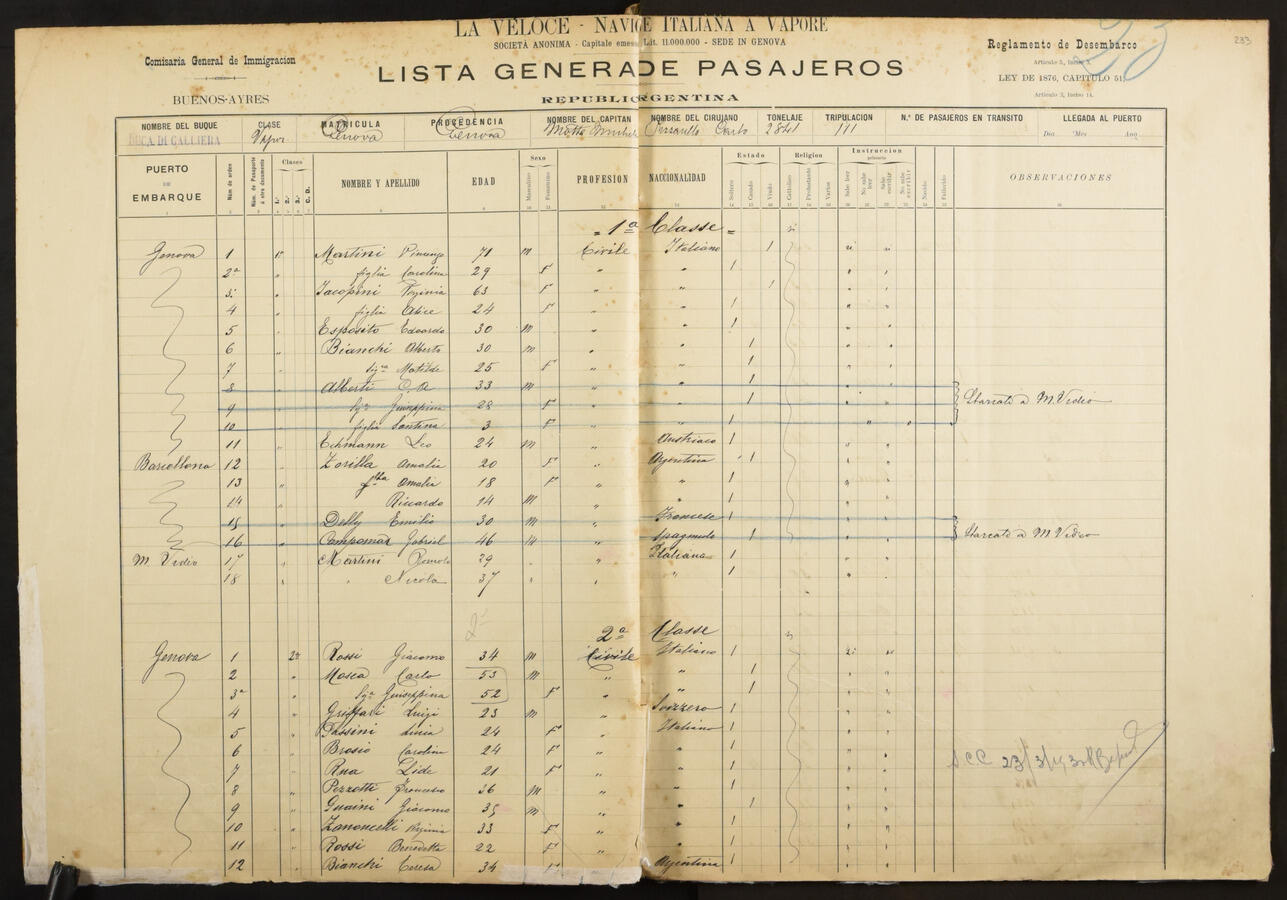 LA VELOCE - NAVIGE ITALIANA A VAPORE
SOCIETÀ ANONIMA - Capitale emess Lit. 11.000.000 - SEDE IN GENOVA
Comisaria General de Immigracion
BUENOS-AYRES
LISTA GENERADE PASAJEROS
REPUBLICRGENTINA
Reglamento de Desembarco
Articulo 5, Inciso
LEY DE 1876, CAPITULO 51,
Articulo 2, Inciso 14.
23
233
NOMBRE DEL BUQUE CLASE MATRICULA PROCEDENCIA NOMBRE DEL CAPITAN NOMBRE DEL CIRUJANO TONELAJE TRIPULACION N.º DE PASAJEROS EN TRANSITO LLEGADA AL PUERTO
DUCA DI GALLIERA Vapor Genova Genova Carlo 111 Dia Mes Ano
PUERTO DE EMBARQUE Núm de orden Núm. de Pasaporte ú otro documento Clases 1.ª 2.ª 3.ª C. D. NOMBRE Y APELLIDO EDAD Sexo Masculino Femenino PROFESION NACCIONALIDAD Estado Soltero Casado Viudo Religion Catolico Protestante Varios Instruccion primaria Sabe leer No sabe leer Sabe escribir No sabe escribir Nacido Fallecido OBSERVACIONES
= 1ª Classe =
Genova 1 1ª Martini 71 m Civile Italiano
2 figlia Carolina 29 F " "
3 Iacopini Virginia 63 F " "
4 figlia Alice 24 F " "
5 Esposito Edoardo 30 m " "
6 Bianchi Alberto 30 m " "
7 Sigra Matilde 25 F " "
8 Alberti 33 m " "
9 Sigra Giuseppina 28 F " " Sbarcati a M. Video
10 figlia Santina 3 F " "
11 Leo 24 m " Austriaco
Barcellona 12 Zorilla Amalia 20 F " Argentina
13 Amalia 18 F " "
14 Riccardo 14 m " "
15 Emilio 30 m " Francese
16 Campomar Gabriel 46 m " Spagnuolo Sbarcati a M. Video
M. Video 17 Martini 29 " " Italiana
18 " Nicola 37 " " "
2ª Classe
Genova 1 2ª Rossi Giacomo 34 m Civile Italiano
2 Mosca Carlo 53 m " "
3 Sigra Giuseppina 52 F " "
4 Luigi 23 m " Svizzero
5 Passini Livia 24 F " Italiano
6 Brosio Carolina 24 F " "
7 Rua Lide 21 F " "
8 Pezzotti Francesco 36 m " "
9 Guaini Giacomo 35 m " "
10 Zanoncelli Regina 33 F " "
11 Rossi Benedetta 22 F " "
12 Bianchi Teresa 34 F " Argentina